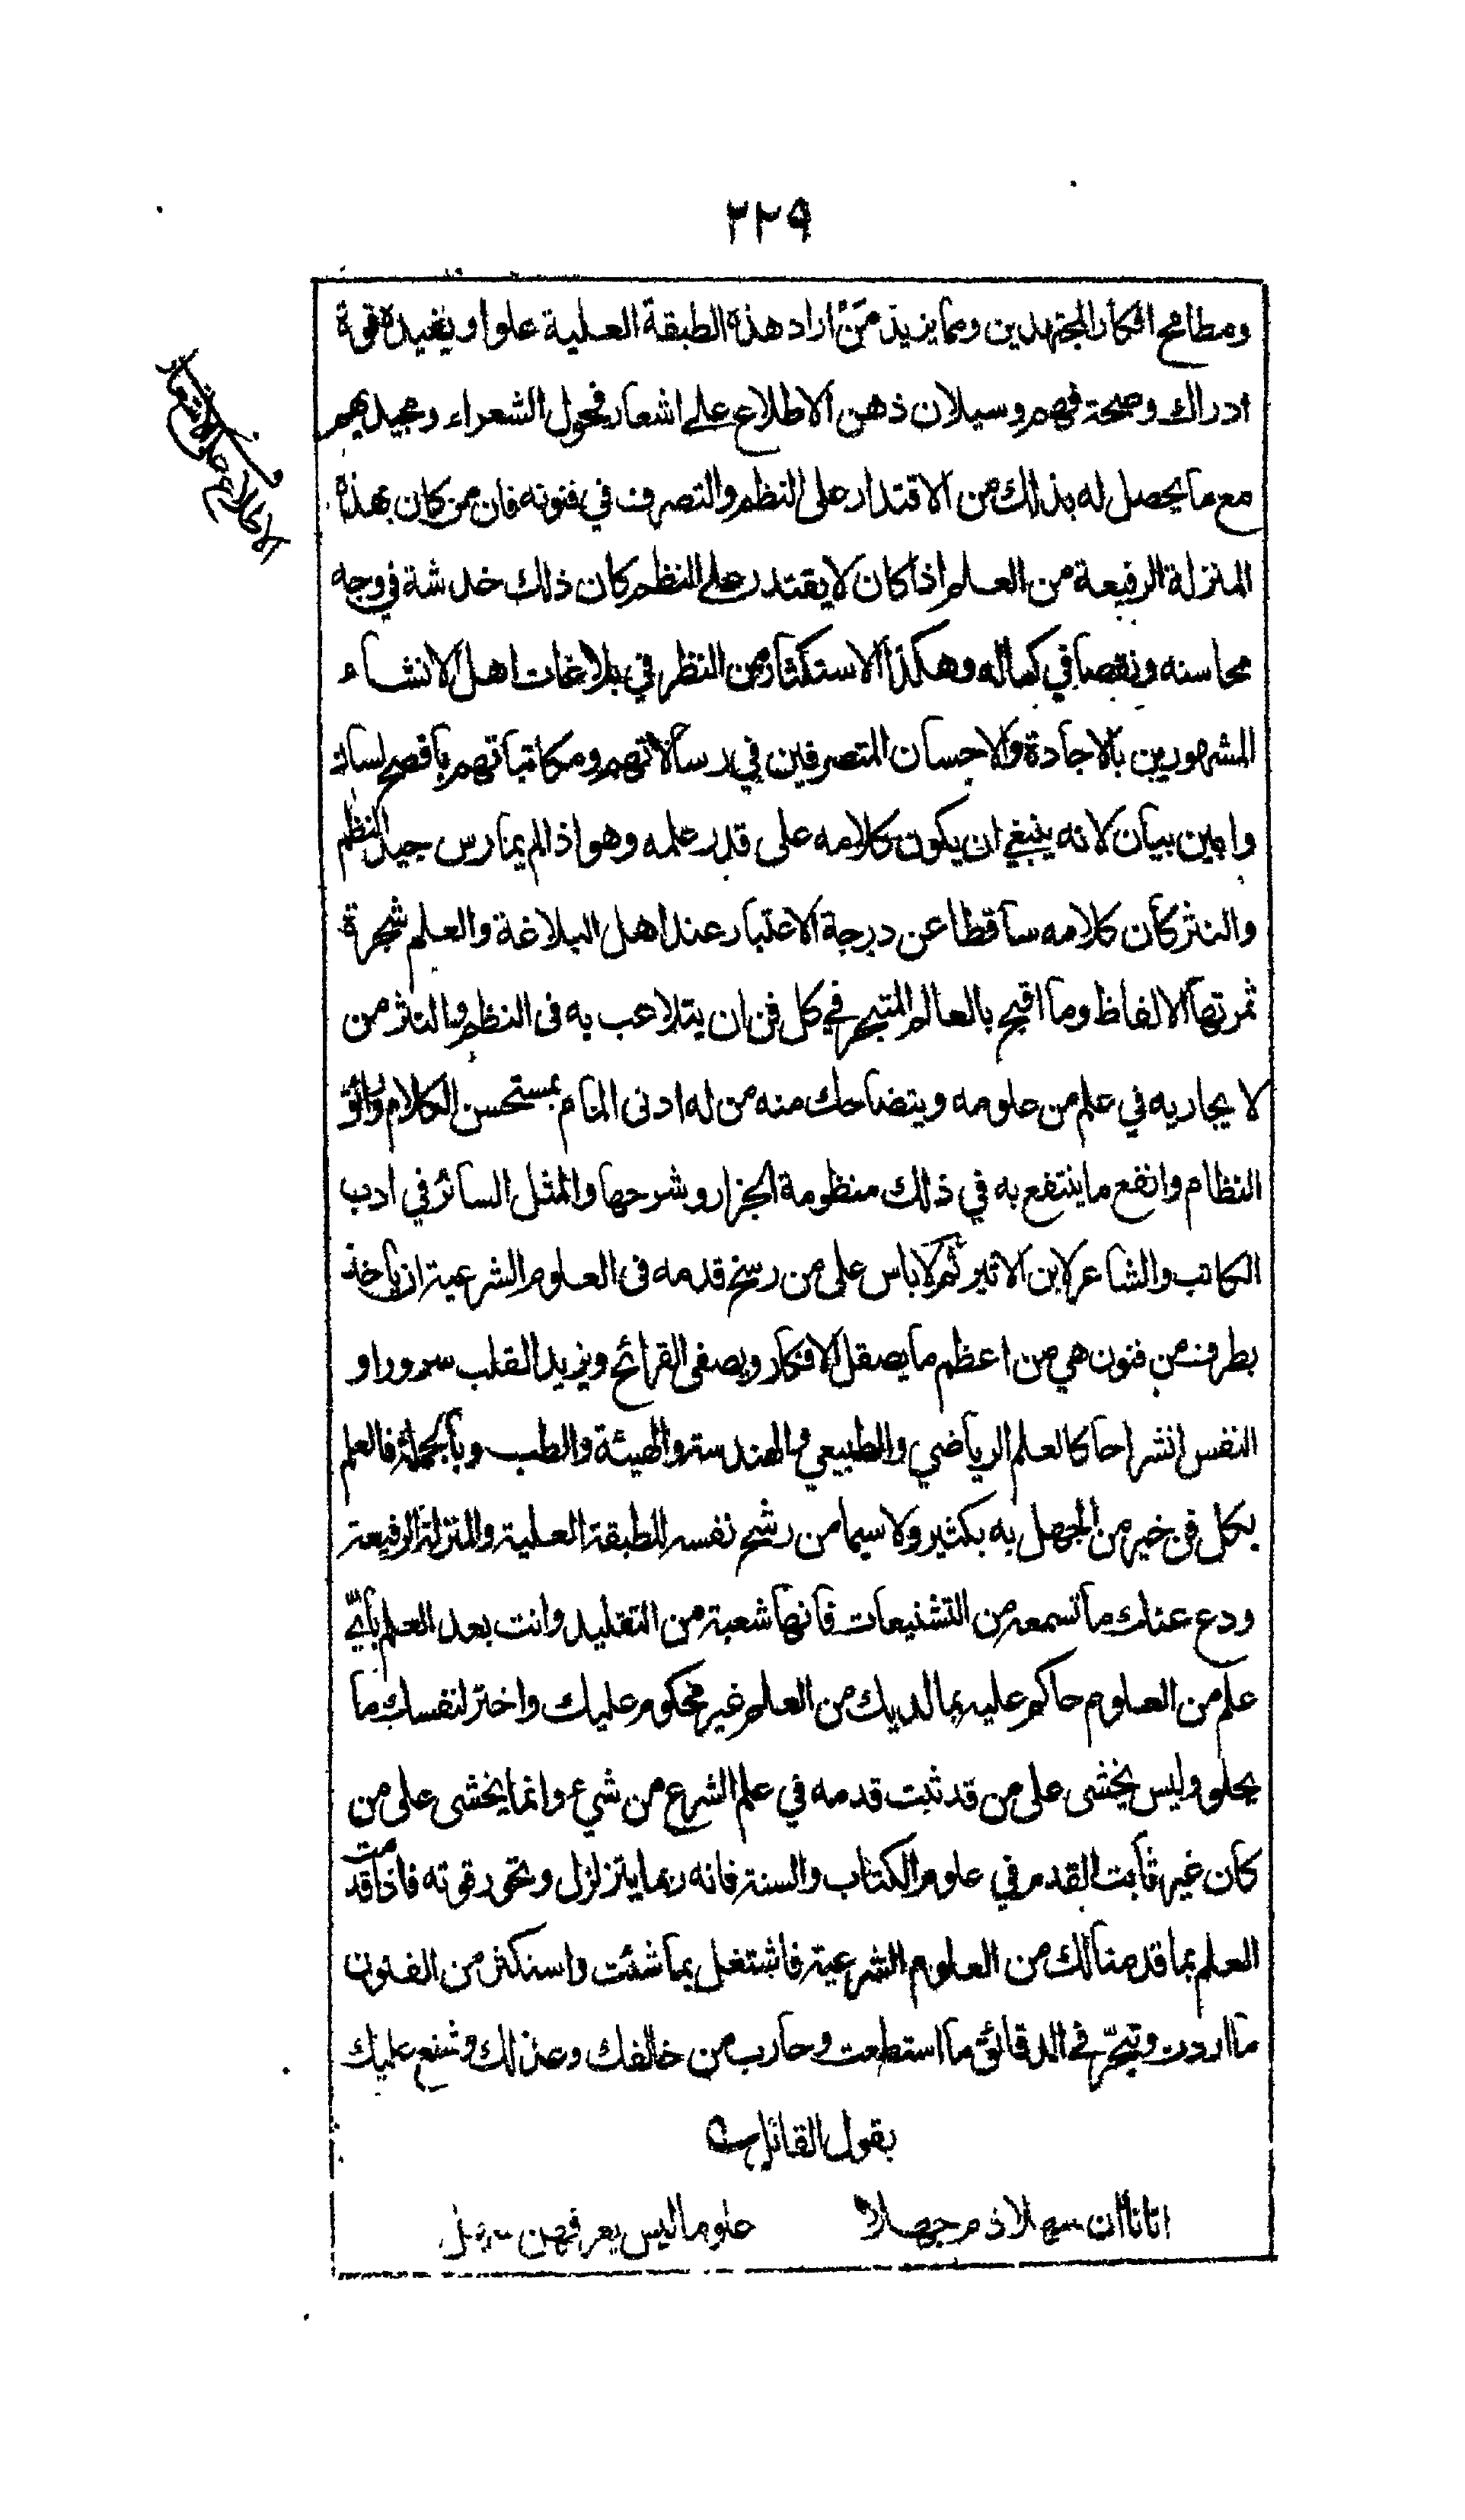 ٢٢٩
ومطامح افكار المجتهدين ومما يزيد من اراد هذه الطبقة العلية علوا ويفيده قوة
ادراك وصحة فهم وسيلان ذهن الاطلاع على اشعار فحول الشعراء ومجيديهم
مع ما يحصل له بذلك من الاقتدار على النظم والتصرف في فنونه فان من كان بهذه
المنزلة الرفيعة من العلم اذا كان لا يقتدر على النظم كان ذلك خدشة في وجه
محاسنه ونقصا في كماله وهكذا الاستكثار من النظر في بلاغات اهل الانشاء
المشهورين بالاجادة والاحسان المتصرفين في رسالاتهم ومكاتباتهم بافصح لسان
وابين بيان لانه ينبغي ان يكون كلامه على قدر علمه وهو اذا لم يمارس جيد النظم
والنثر كان كلامه ساقطا عن درجة الاعتبار عند اهل البلاغة والعلم شجرة
ثمرتها الالفاظ وما اقبح بالعالم المتبحر في كل فن ان يتلاعب به فى النظم والنثر من
لا يجاريه في علم من علومه ويتضاحك منه من له ادنى المام بمستحسن الكلام ورائق
النظام وانفع ما ينتفع به في ذلك منظومة الجزار وشرحها والمثل السائر في ادب
الكاتب والشاعر لابن الاثير ثم لا باس على من رسخ قدمه فى العلوم الشرعية ان ياخذ
بطرف من فنون هي من اعظم ما يصقل الافكار ويصفى القرائح ويزيد القلب سرورا و
النفس انشراحا كالعلم الرياضي والطبيعي والهندسة والهيئة والطب وبالجملة فالعلم
بكل فن خير من الجهل به بكثير ولا سيما من رشح نفسه للطبقة العلية والمنزلة الرفيعة
ودع عنك ما تسمعه من التشنيعات فانها شعبة من التقليد وانت بعد العلم باي
علم من العلوم حاكم عليه بما لديك من العلم غير محكوم عليك واختر لنفسك ما
يحلو وليس يخشى على من قد ثبت قدمه في علم الشرع من شيء وانما يخشى على من
كان غير ثابت القدم في علوم الكتاب والسنة فانه ربما يتزلزل وتخور قوته فاذا قدمت
العلم بما قدمنا لك من العلوم الشرعية فاشتغل بما شئت واستكثر من الفنون
ما اردت وتبحّر في الدقائق ما استطعت وحارب من خالفك وعذلك وشنع عليك
بقول القائل
اتانا ان سهلا ذم جهلا علوما ليس يعرفهن سهل